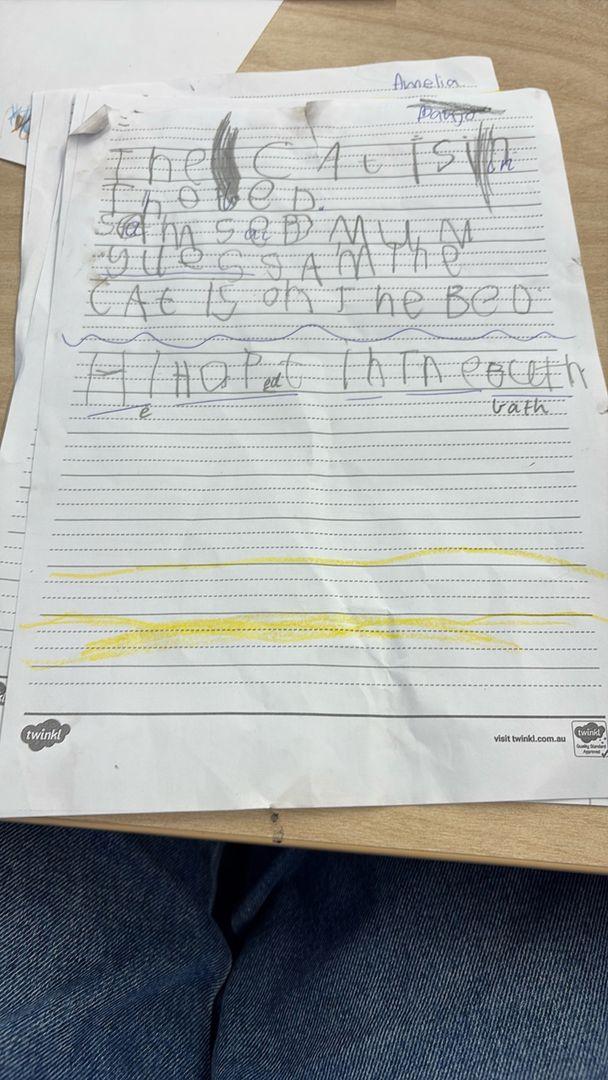 Amelia
The CAt is in
The BeD.
Sam saiD MUM
yues SAM The
CAt is on The BeD
HI HOPedt In The bath
e
bath
twinkl
visit twinkl.com.au
twinkl
Quality Standard
Approved